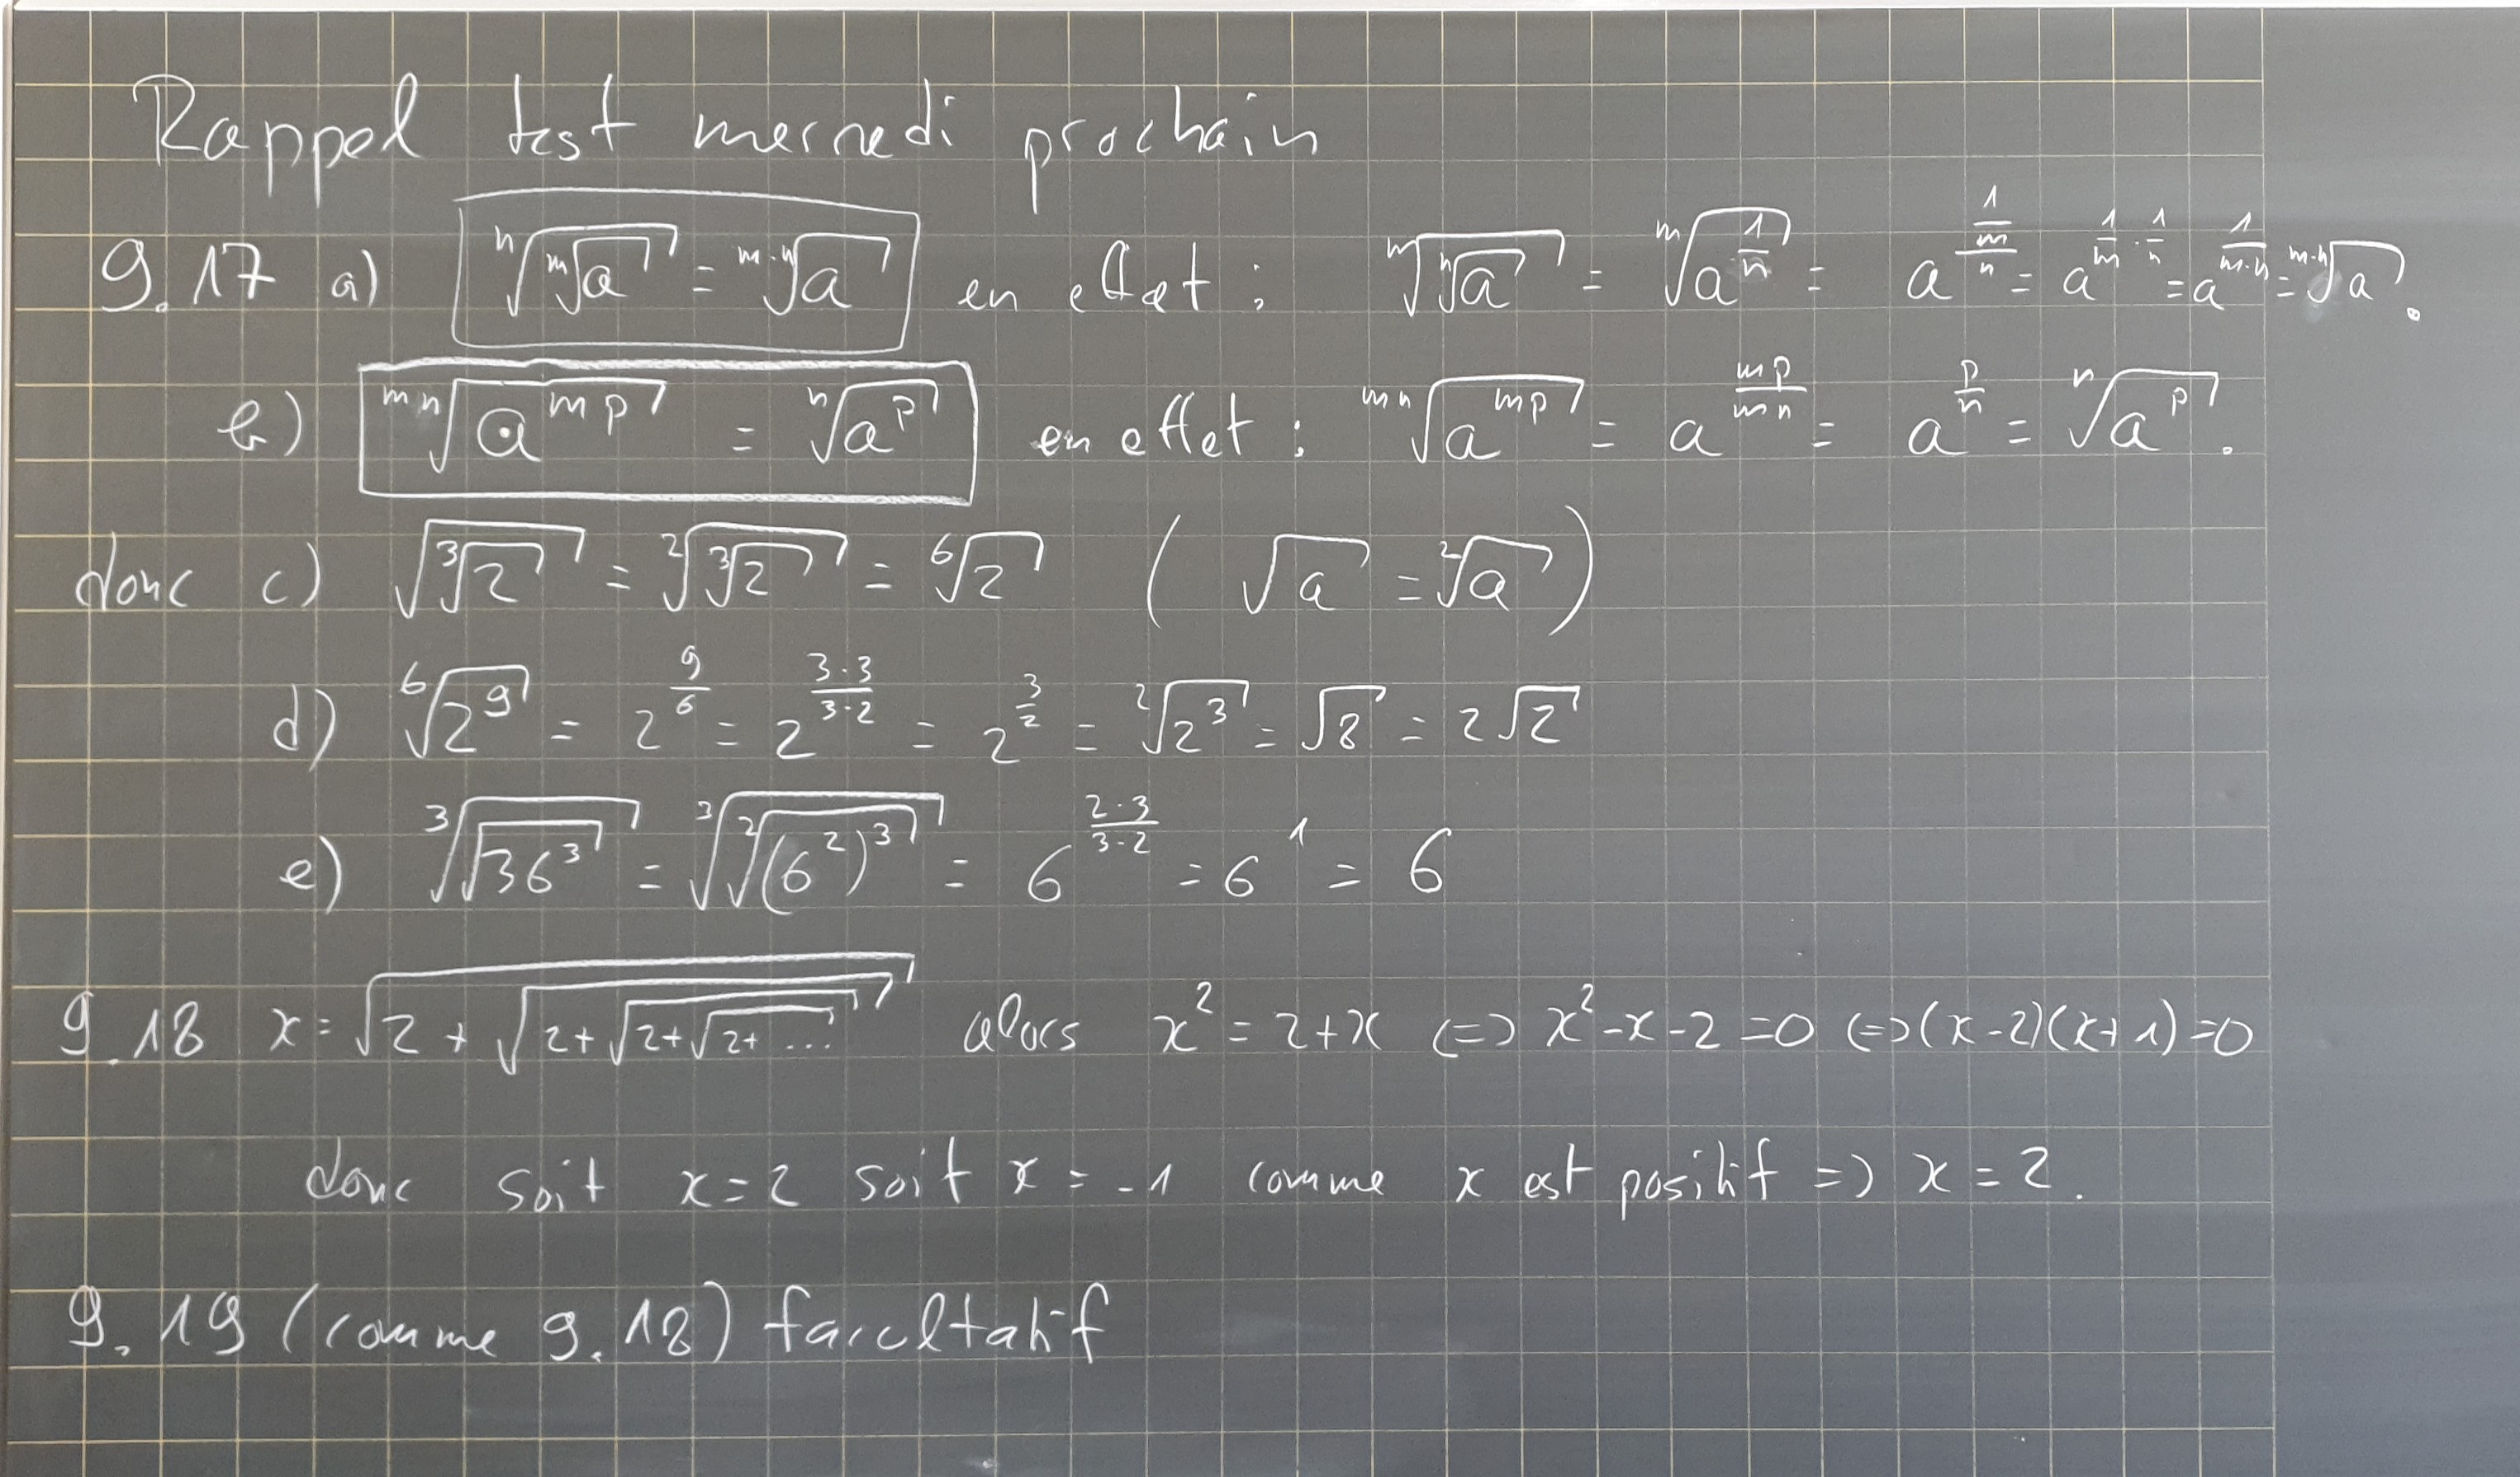 Rappel test mercredi prochain
9.17 a) ⁿ√(ᵐ√a) = ᵐ·ⁿ√a en effet : ᵐ√(ⁿ√a) = ᵐ√(a^(1/n)) = a^((1/m)/n) = a^(1/m · 1/n) = a^(1/(m·n)) = ᵐ·ⁿ√a.
b) ᵐⁿ√(a^(mp)) = ⁿ√(a^p) en effet : ᵐⁿ√(a^(mp)) = a^(mp/mn) = a^(p/n) = ⁿ√(a^p).
donc c) √(³√2) = ²√(³√2) = ⁶√2 (√a = ²√a)
d) ⁶√(2⁹) = 2^(9/6) = 2^((3·3)/(3·2)) = 2^(3/2) = ²√(2³) = √8 = 2√2
e) ³√(√(36³)) = ³√(²√((6²)³)) = 6^((2·3)/(3·2)) = 6¹ = 6
9.18 x = √(2 + √(2+√(2+√(2+ ...)))) alors x² = 2+x <=> x²-x-2 =0 <=> (x-2)(x+1)=0
donc soit x=2 soit x = -1 comme x est positif => x = 2.
9.19 (comme 9.18) facultatif